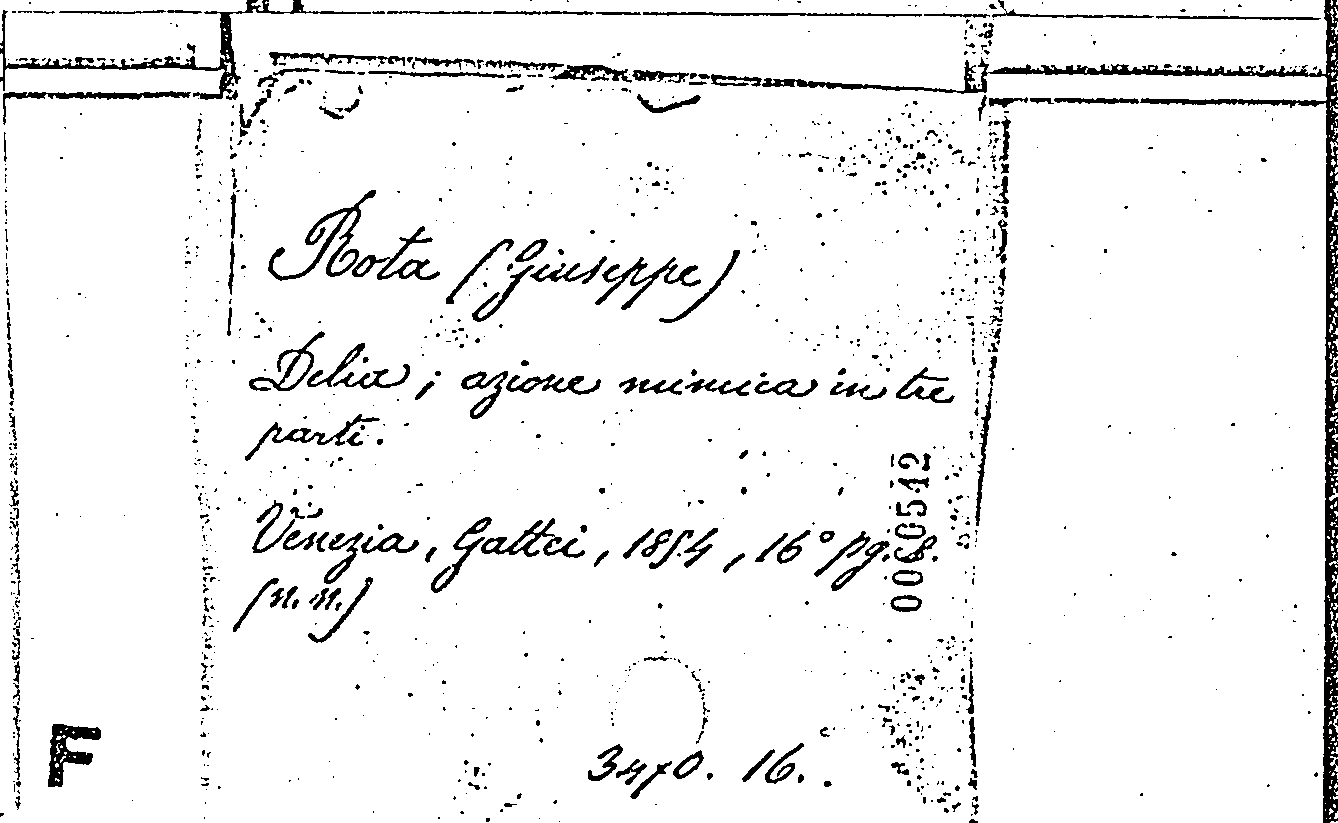 Rota (Giuseppe)
Delia ; azione mimica in tre
parti.
Venezia, Gattei, 1854, 16° pg. 8.
(n. n.)
0000542
3470. 16.
F